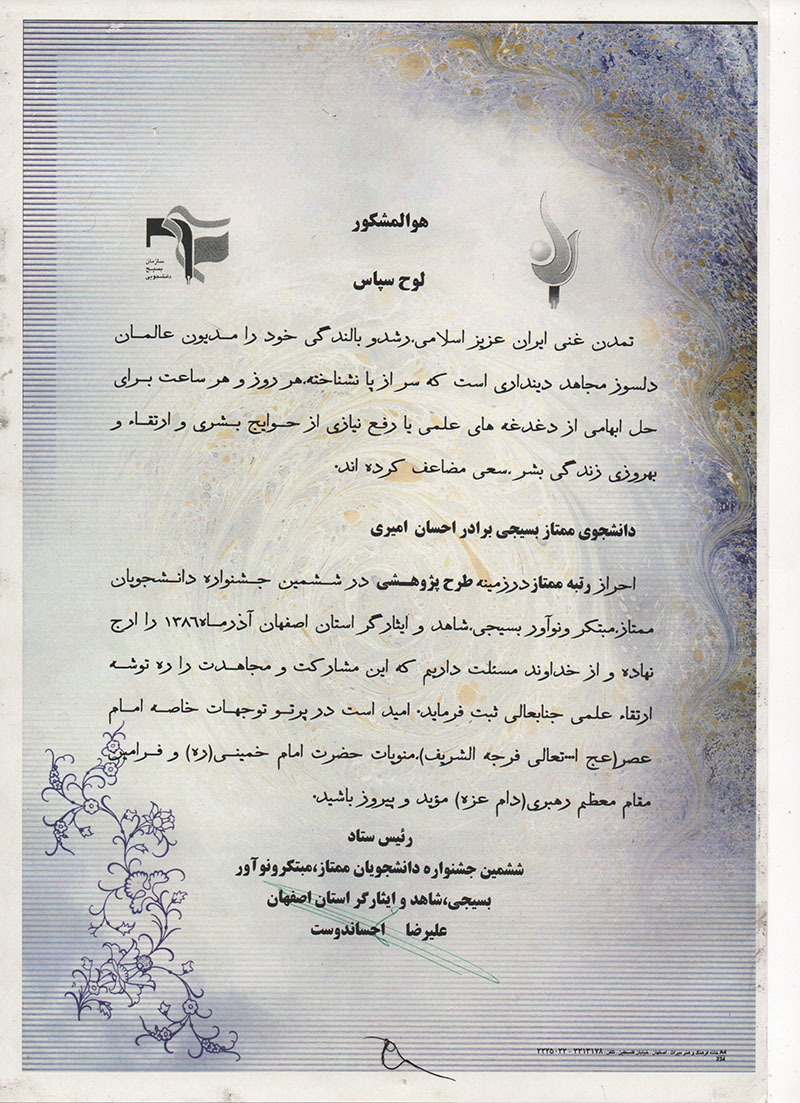 هوالمشکور
سازمان
بسیج
دانشجویی
لوح سپاس
تمدن غنی ایران عزیز اسلامی،رشدو بالندگی خود را مدیون عالمان
دلسوز مجاهد دینداری است که سر از پا نشناخته،هر روز و هر ساعت برای
حل ابهامی از دغدغه های علمی یا رفع نیازی از حوایج بشری و ارتقاء و
بهروزی زندگی بشر ،سعی مضاعف کرده اند.
دانشجوی ممتاز بسیجی برادر احسان امیری
احراز رتبه ممتازدرزمینه طرح پژوهشی در ششمین جشنواره دانشجویان
ممتاز،مبتکر ونوآور بسیجی،شاهد و ایثارگر استان اصفهان آذرماه۱۳۸۶ را ارج
نهاده و از خداوند مسئلت داریم که این مشارکت و مجاهدت را ره توشه
ارتقاء علمی جنابعالی ثبت فرماید. امید است در پرتو توجهات خاصه امام
عصر(عج ا...تعالی فرجه الشریف)،منویات حضرت امام خمینی(ره) و فرامین
مقام معظم رهبری(دام عزه) مؤید و پیروز باشید.
رئیس ستاد
ششمین جشنواره دانشجویان ممتاز،مبتکرونوآور
بسیجی،شاهد و ایثارگر استان اصفهان
علیرضا احساندوست
A4 خانه فرهنگ و هنر میراث . اصفهان . خیابان فلسطین . تلفن : ۲۲۱۳۱۷۸ - ۲۲۲۵۰۲۲
234